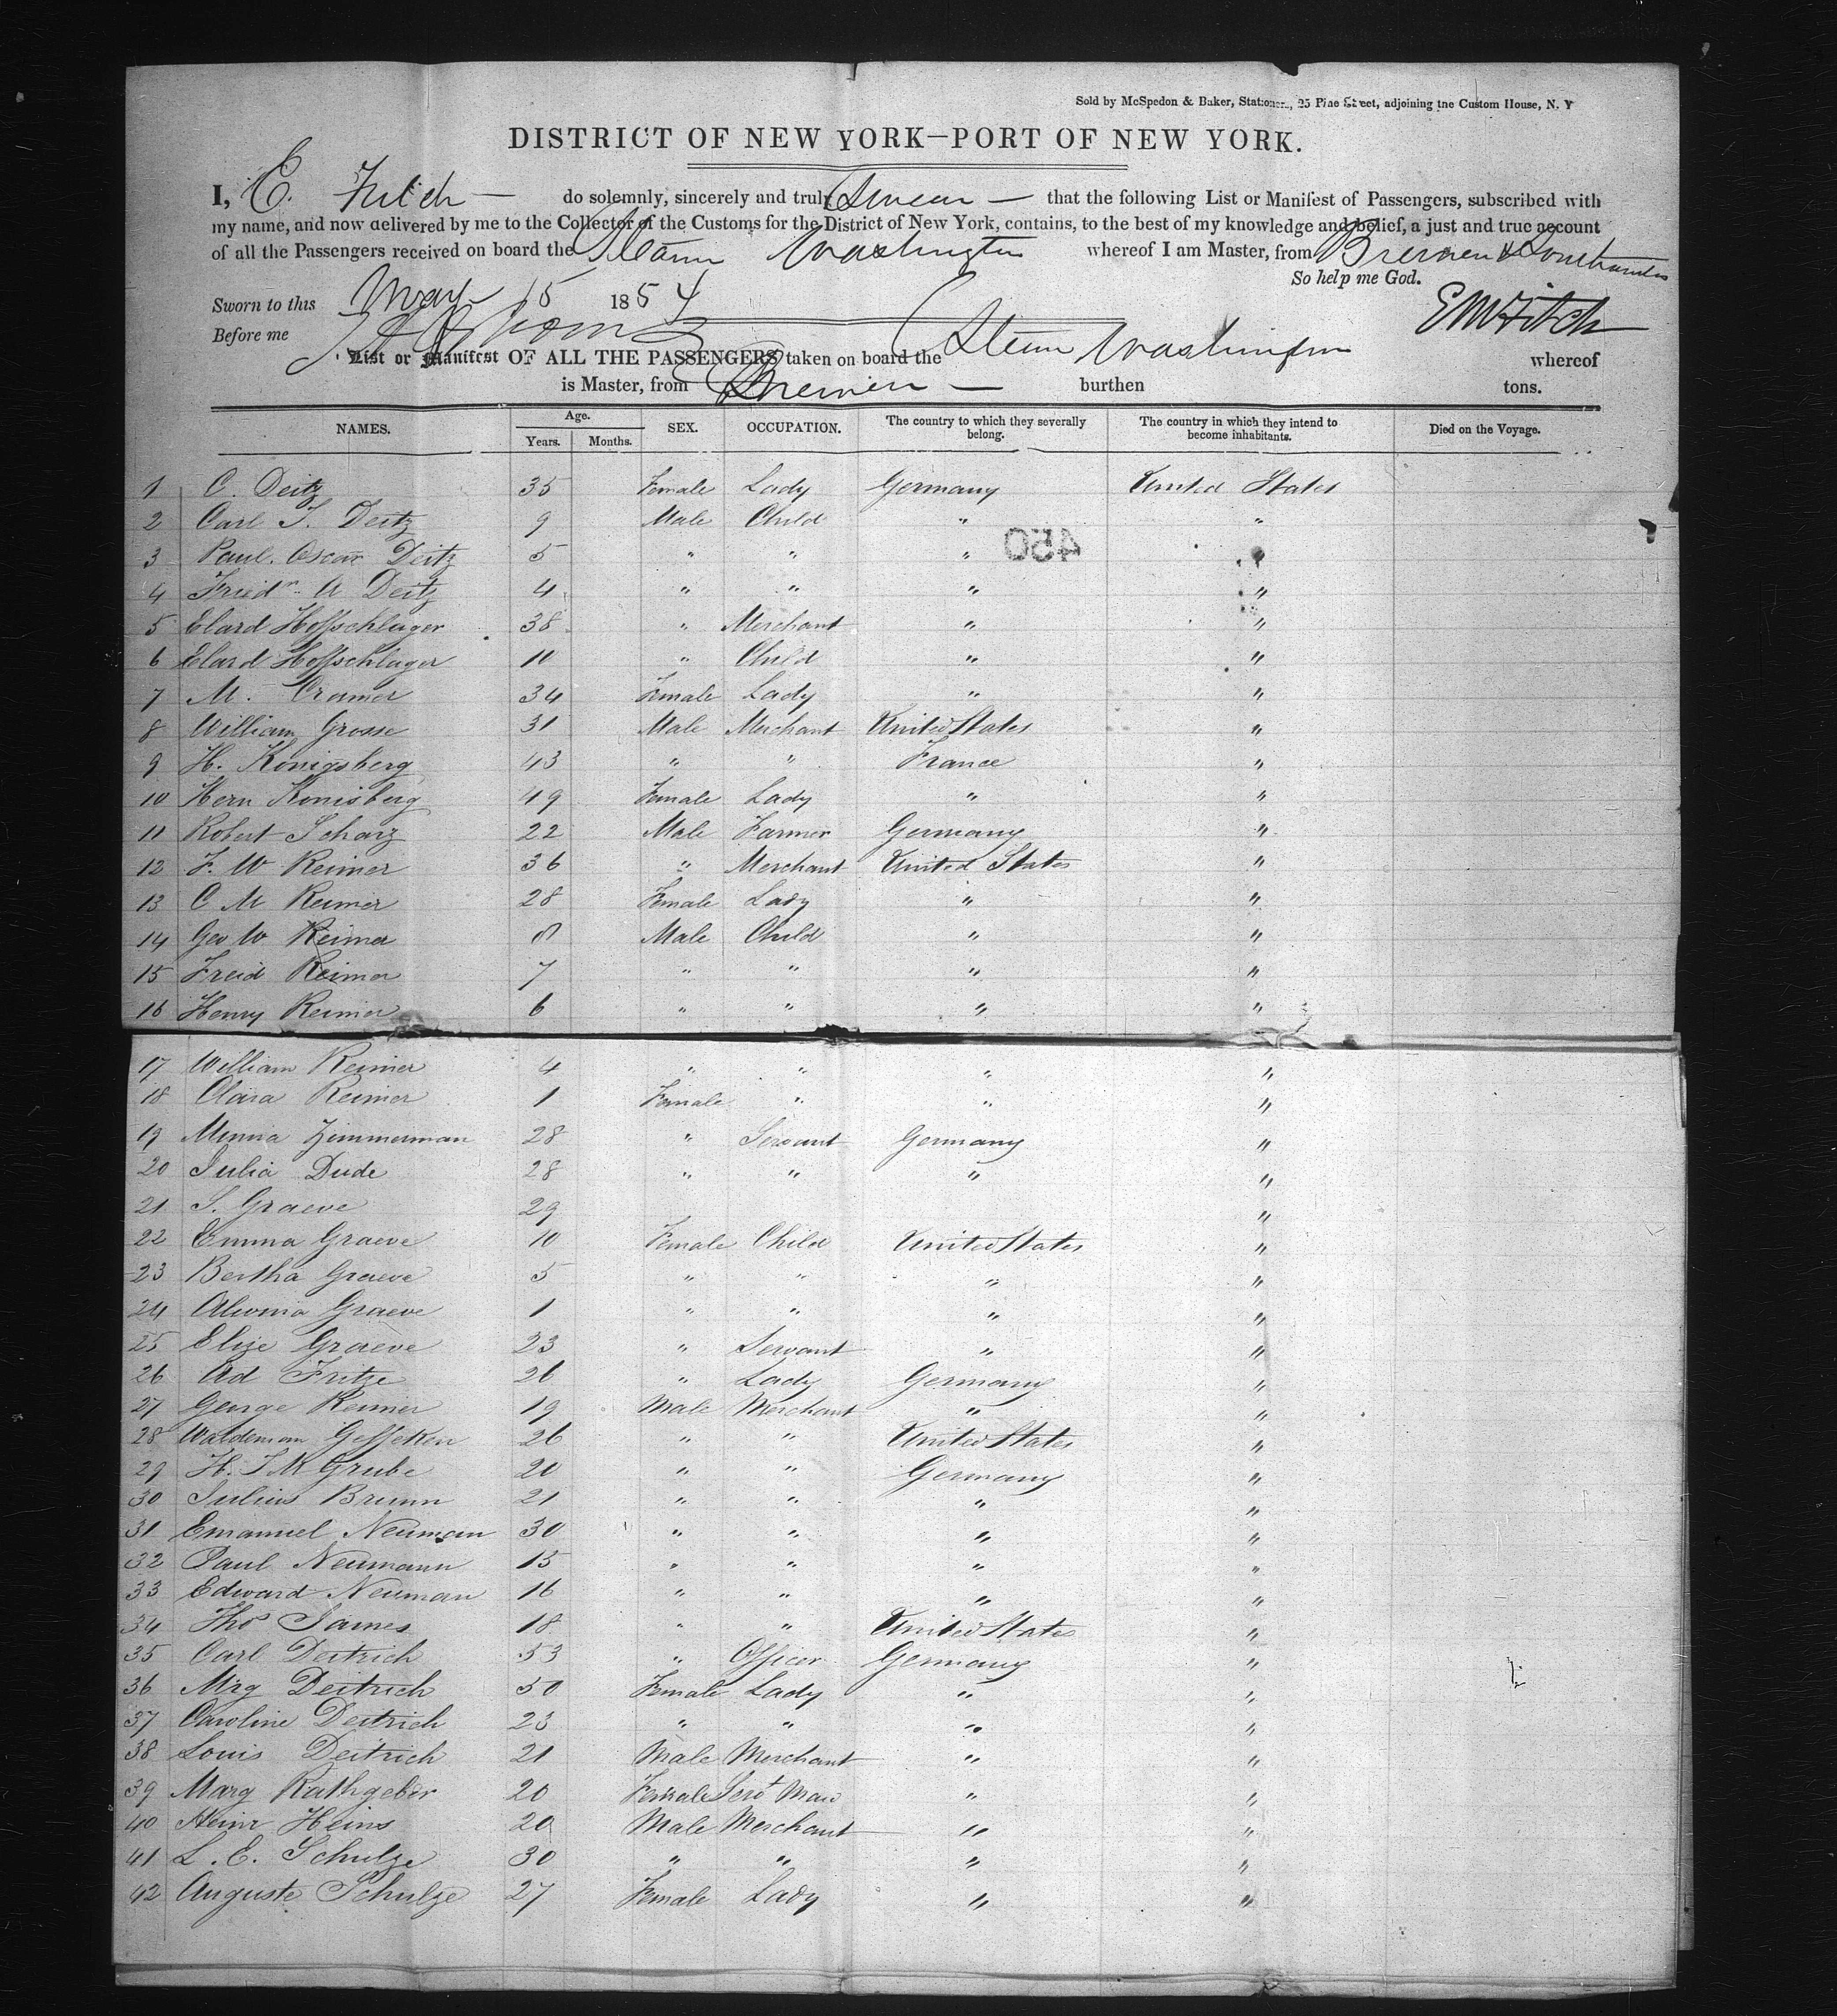 Sold by McSpedon & Baker, Stationers, 25 Pine Street, adjoining the Custom House, N. Y
DISTRICT OF NEW YORK—PORT OF NEW YORK.
I, E. Fitch — do solemnly, sincerely and truly Swear — that the following List or Manifest of Passengers, subscribed with
my name, and now delivered by me to the Collector of the Customs for the District of New York, contains, to the best of my knowledge and belief, a just and true account
of all the Passengers received on board the Steamr Washington whereof I am Master, from Bremen & Southampton
So help me God.
Sworn to this May 15 1854
EM Fitch
Before me
List or Manifest OF ALL THE PASSENGERS taken on board the Steam Washington whereof
is Master, from Bremen — burthen tons.
NAMES. Age. Years. Months. SEX. OCCUPATION. The country to which they severally belong. The country in which they intend to become inhabitants. Died on the Voyage.
1 C. Deitz 35 Female Lady Germany United States
2 Carl T. Deitz 9 Male Child " "
450
3 Paul. Oscar Deitz 5 " " "
4 Friedr. A Deitz 4 " " " "
5 Elard Hoffschlager 38 " Merchant " "
6 Elard Hoffschlager 10 " Child " "
7 M. Cramer 34 Female Lady " "
8 William Grosse 31 Male Merchant United States "
9 H. Konigsberg 43 " " France "
10 Hern Konisberg 49 Female Lady " "
11 Robert Scharz 22 Male Farmer Germany "
12 F. W Reimer 36 " Merchant United States "
13 C M Reimer 28 Female Lady " "
14 Geo W Reimer 8 Male Child " "
15 Freid Reimer 7 " " " "
16 Henry Reimer 6 " " " "
17 William Reimer 4 " " " "
18 Clara Reimer 1 Female " " "
19 Minna Zimmerman 28 " Servant Germany "
20 Julia Dude 28 " " " "
21 S. Graeve 29 "
22 Emma Graeve 10 Female Child United States "
23 Bertha Graeve 5 " " " "
24 Alwina Graeve 1 " " " "
25 Elize Graeve 23 " Servant " "
26 Ad Fritze 26 " Lady Germany "
27 George Reimer 19 Male Merchant " "
28 Waldeman Geffeken 26 " " United States "
29 H. T M Grube 20 " " Germany "
30 Julius Brunn 21 " " " "
31 Emanuel Neuman 30 " " " "
32 Paul Neumann 15 " " " "
33 Edward Neuman 16 " " " "
34 Thos James 18 " " United States "
35 Carl Deitrich 53 " Officer Germany "
36 Mrg Deitrich 50 Female Lady " "
37 Caroline Deitrich 23 " " " "
38 Louis Deitrich 21 Male Merchant " "
39 Marg Rathgeber 20 Female Servt Maid " "
40 Heinr Heins 20 Male Merchant " "
41 L. E. Schulze 30 " " " "
42 Auguste Schulze 27 Female Lady " "